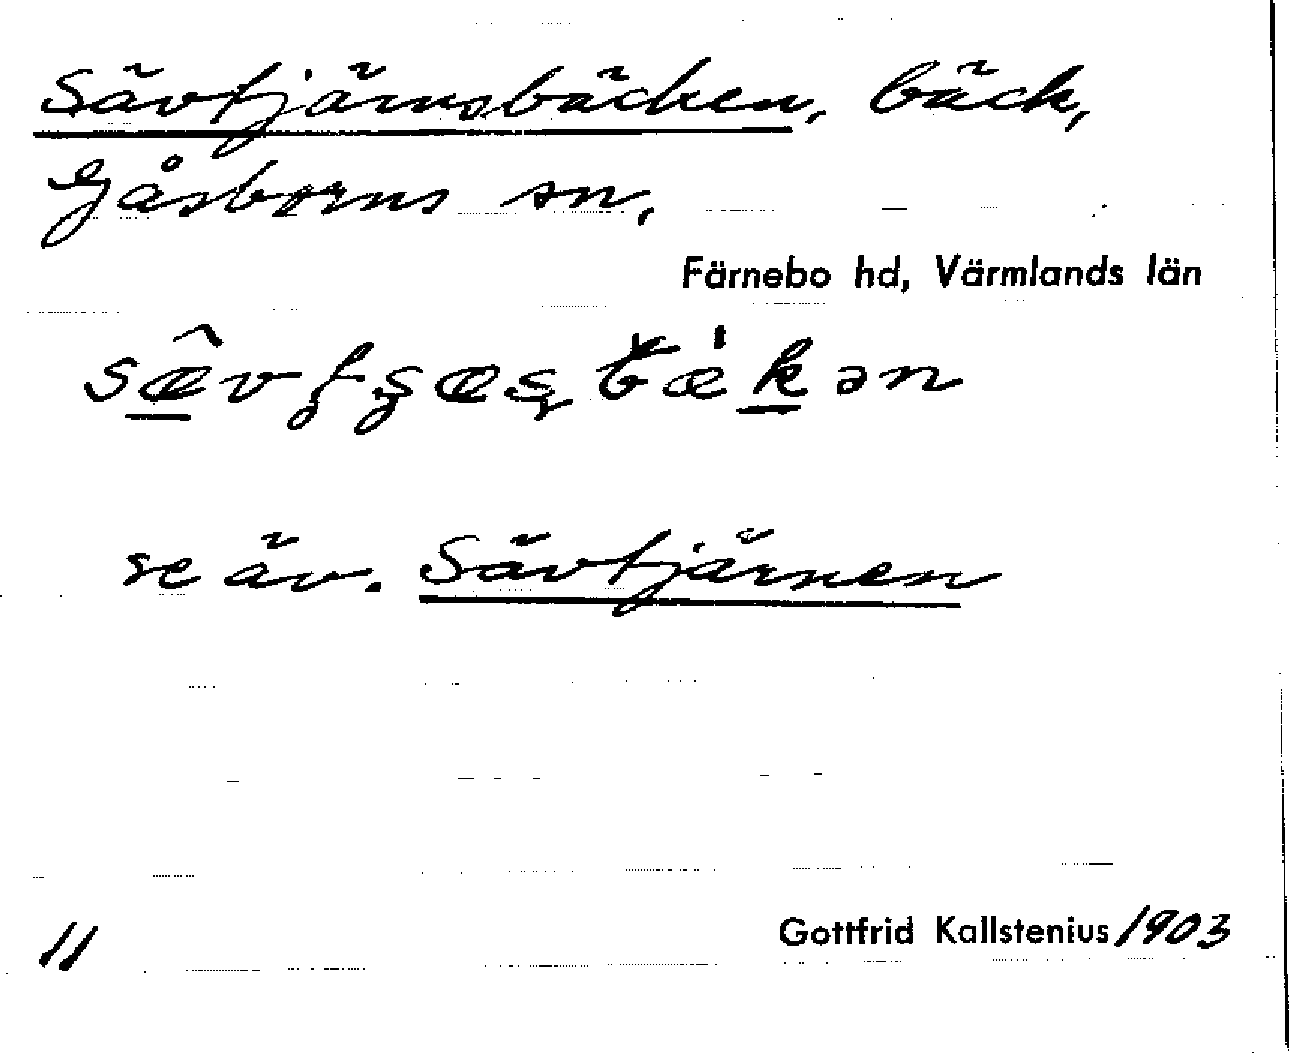 Sävtjärnsbäcken, bäck,
Gåsborns sn,
Färnebo hd, Värmlands län
se äv. Sävtjärnen
11
Gottfrid Kallstenius/1903